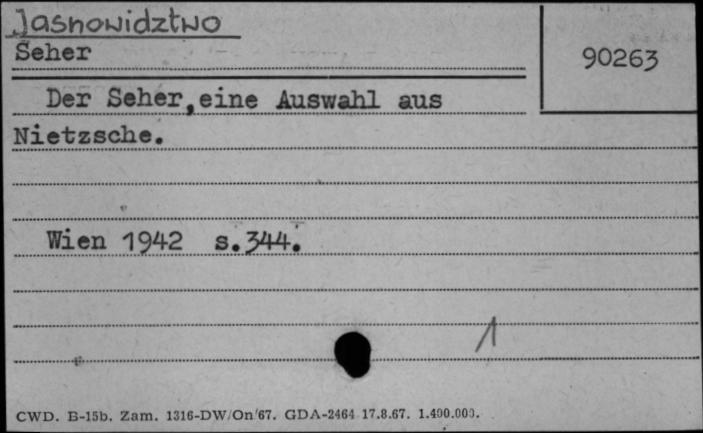 Jasnowidztwo
Seher
90263
Der Seher, eine Auswahl aus
Nietzsche.
Wien 1942 s.344.
1
CWD. B-15b. Zam. 1316-DW/On/67. GDA-2464 17.8.67. 1.400.000.